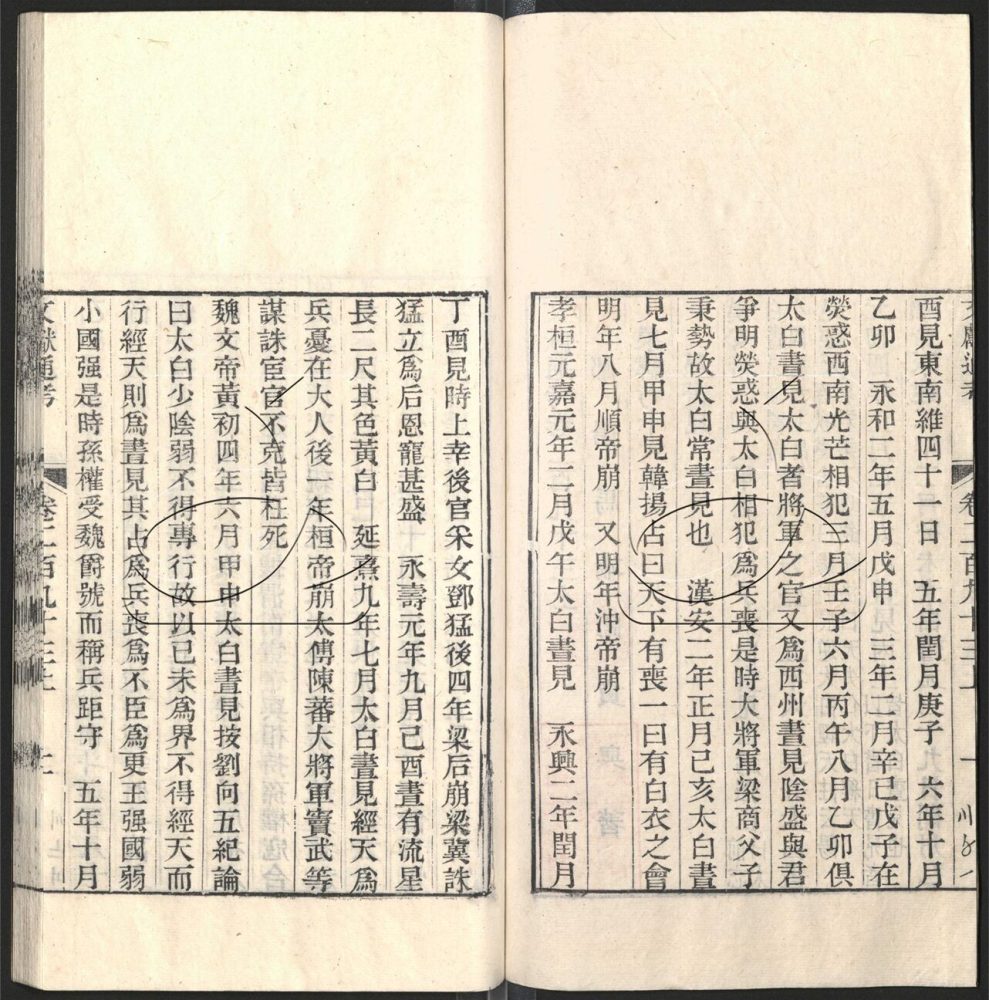 文獻通考 卷二百九十三上
酉見東南維四十一日　五年閏月庚子　六年十月
乙卯　永和二年五月戊申　三年二月辛巳戊子在
熒惑西南光芒相犯三月壬子六月丙午八月乙卯俱
太白晝見太白者將軍之官又爲西州晝見陰盛與君
爭明熒惑與太白相犯爲兵喪是時大將軍梁商父子
秉勢故太白常晝見也　漢安二年正月己亥太白晝
見七月甲申見韓揚占曰天下有喪一曰有白衣之會
明年八月順帝崩　又明年沖帝崩
孝桓元嘉元年二月戊午太白晝見　永興二年閏月
丁酉見時上幸後官采女鄧猛後四年梁后崩梁冀誅
猛立爲后恩寵甚盛　永壽元年九月己酉晝有流星
長二尺其色黃白　延熹九年七月太白晝見經天爲
兵憂在大人後一年桓帝崩太傅陳蕃大將軍竇武等
謀誅宦官不克皆枉死
魏文帝黃初四年六月甲申太白晝見按劉向五紀論
曰太白少陰弱不得專行故以已未爲界不得經天而
行經天則爲晝見其占爲兵喪爲不臣爲更王强國弱
小國强是時孫權受魏爵號而稱兵距守　五年十月
文獻通考 卷二百九十三上